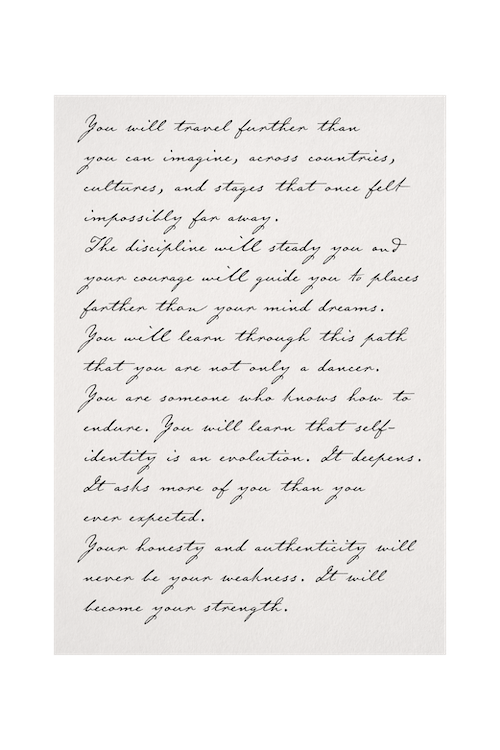 You will travel further than
you can imagine, across countries,
cultures, and stages that once felt
impossibly far away.
The discipline will steady you and
your courage will guide you to places
farther than your mind dreams.
You will learn through this path
that you are not only a dancer.
You are someone who knows how to
endure. You will learn that self-
identity is an evolution. It deepens.
It asks more of you than you
ever expected.
Your honesty and authenticity will
never be your weakness. It will
become your strength.